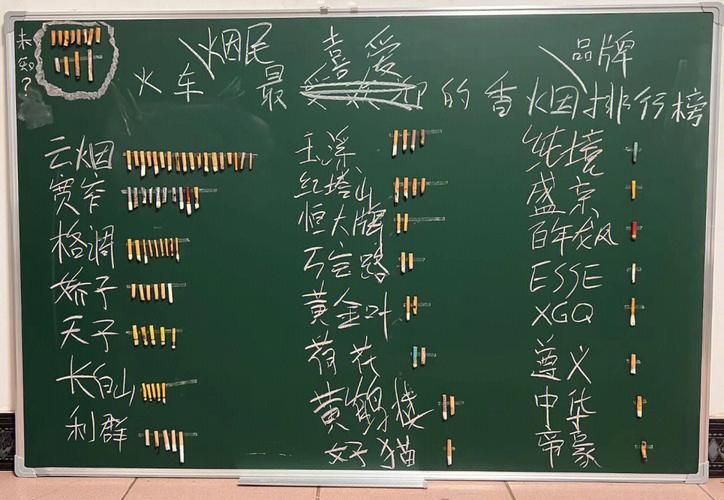 未知?
火车烟民最喜爱的香烟品牌排行榜
云烟
宽窄
格调
娇子
天子
长白山
利群
玉溪
红塔山
恒大牌
万宝路
黄金叶
荷花
黄鹤楼
好猫
纯境
盛京
百年龙凤
ESSE
XGQ
尊义
中华
帝豪